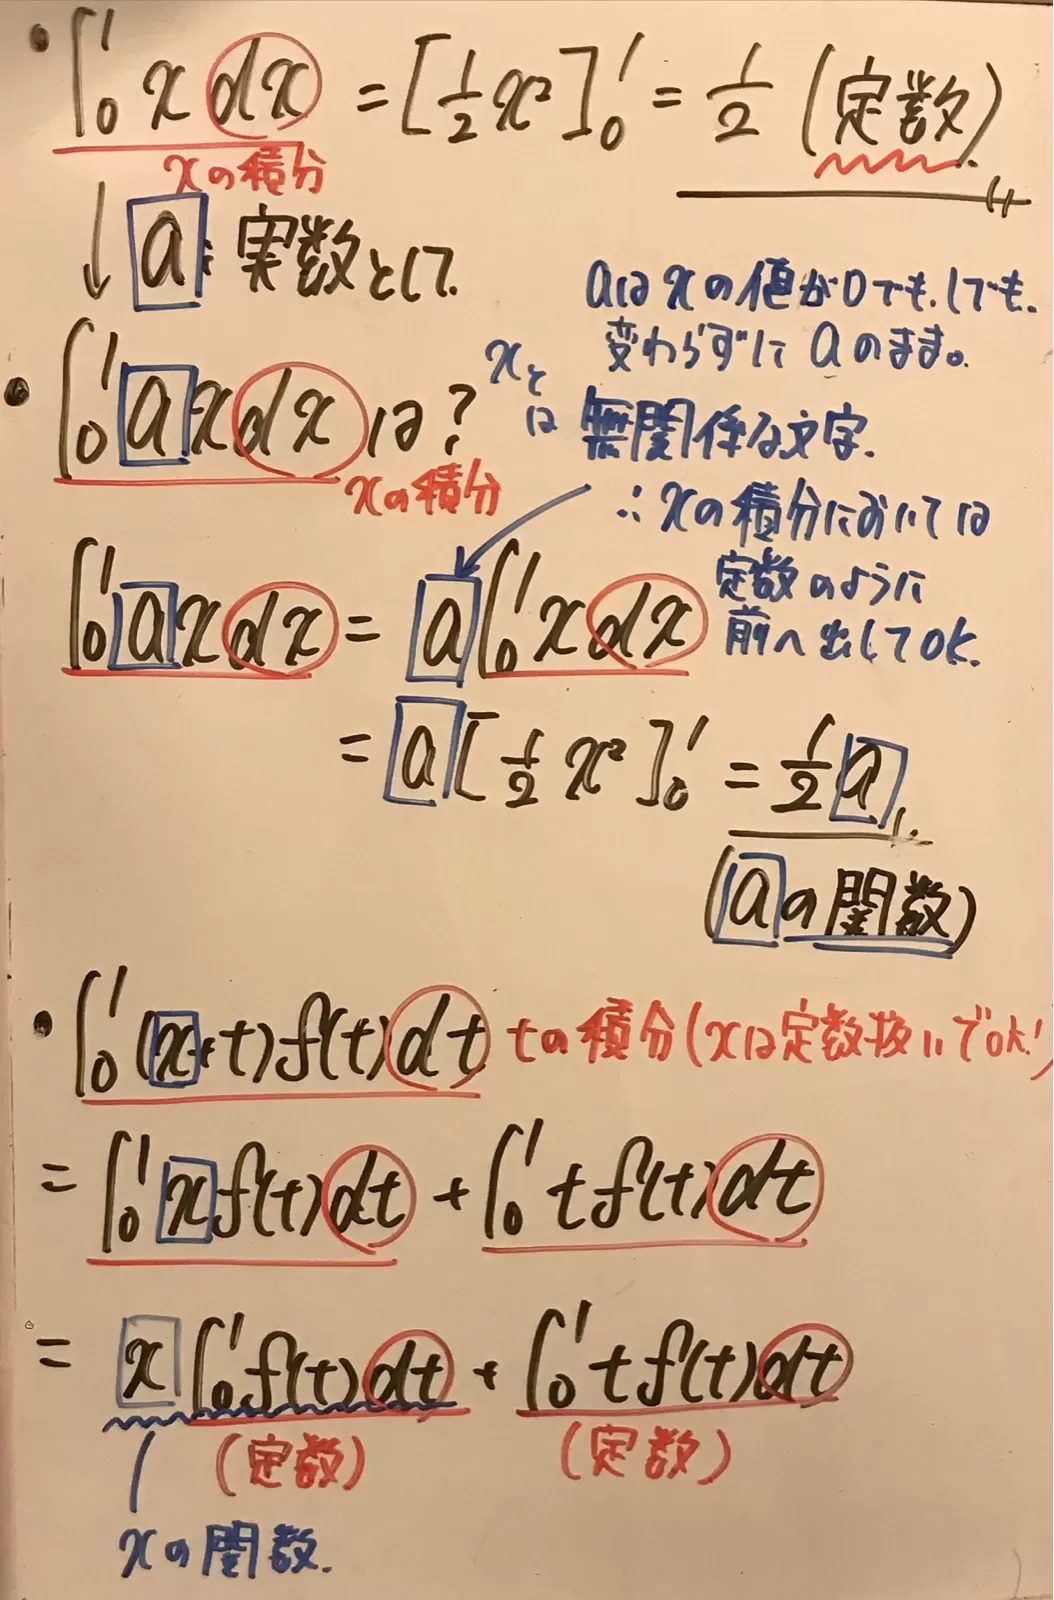 ・∫₀¹ x dx = [½x²]₀¹ = ½ (定数)
xの積分
↓ a:実数として.
aはxの値が0でも.1でも.
変わらずに aのまま。
・∫₀¹ a x dx は?
xの積分
xとは 無関係な文字.
∴ xの積分においては
定数のように
前へ出してOK.
∫₀¹ a x dx = a ∫₀¹ x dx
= a [½ x²]₀¹ = ½ a
(aの関数)
・∫₀¹ (x+t) f(t) dt tの積分 (xは定数扱いでOK!)
= ∫₀¹ x f(t) dt + ∫₀¹ t f(t) dt
= x ∫₀¹ f(t) dt + ∫₀¹ t f(t) dt
(定数) (定数)
xの関数.